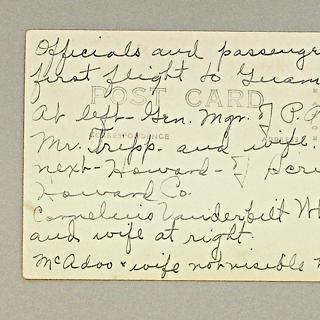 Officials and passenge
first flight to Guam
POST CARD
At left - Gen. Mgr. of P.A
CORRESPONDENCE
Mr. Tripp - and wife.
next - Howard - of Scri
Howard Co.
Cornelius Vanderbilt Wh
and wife at right.
McAdoo & wife not visible